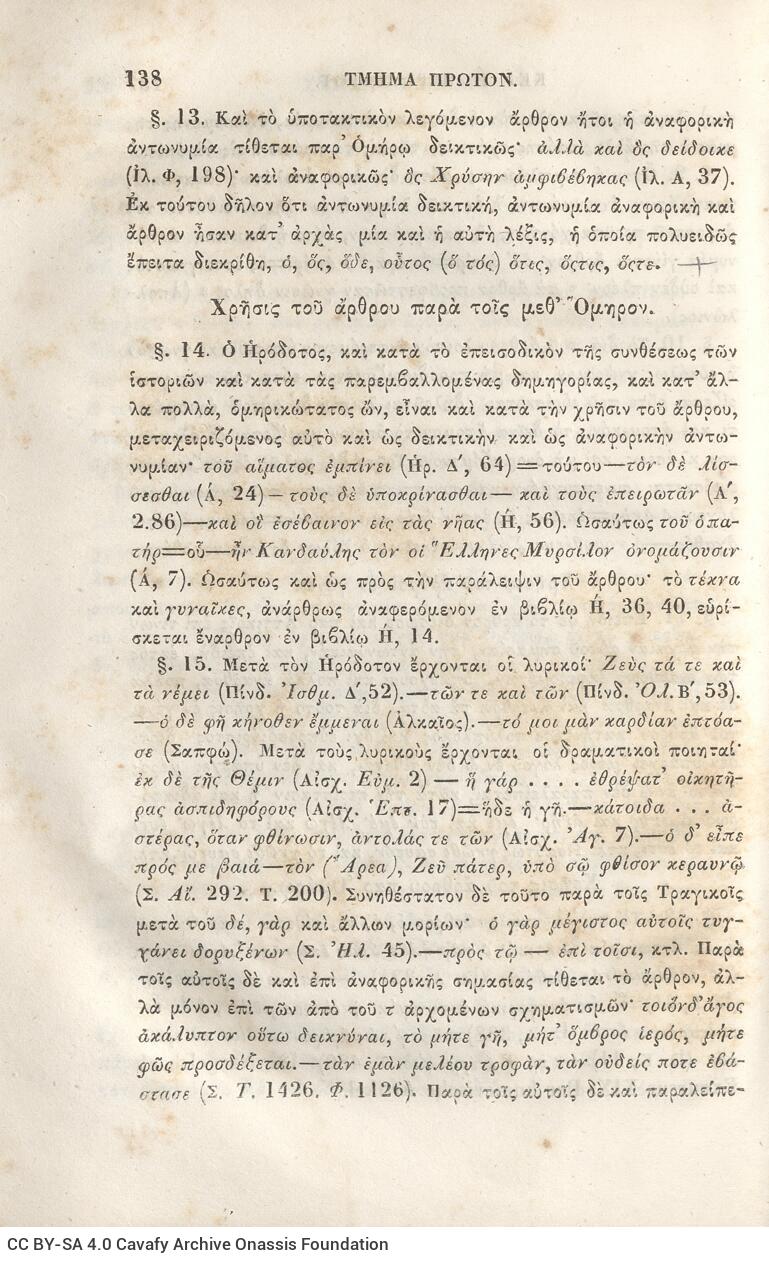 138 ΤΜΗΜΑ ΠΡΩΤΟΝ.
§. 13. Καὶ τὸ ὑποτακτικὸν λεγόμενον ἄρθρον ἤτοι ἡ ἀναφορικὴ
ἀντωνυμία τίθεται παρ' Ὁμήρῳ δεικτικῶς· ἀλλὰ καὶ ὃς δείδοικε
(Ἰλ. Φ, 198)· καὶ ἀναφορικῶς· ὃς Χρύσην ἀμφιβέβηκας (Ἰλ. Α, 37).
Ἐκ τούτου δῆλον ὅτι ἀντωνυμία δεικτικὴ, ἀντωνυμία ἀναφορικὴ καὶ
ἄρθρον ἦσαν κατ' ἀρχὰς μία καὶ ἡ αὐτὴ λέξις, ἡ ὁποία πολυειδῶς
ἔπειτα διεκρίθη, ὁ, ὅς, ὅδε, οὗτος (ὅ τός) ὅτις, ὅςτις, ὅςτε.
Χρῆσις τοῦ ἄρθρου παρὰ τοῖς μεθ' Ὅμηρον.
§. 14. Ὁ Ἡρόδοτος, καὶ κατὰ τὸ ἐπεισοδικὸν τῆς συνθέσεως τῶν
ἱστοριῶν καὶ κατὰ τὰς παρεμβαλλομένας δημηγορίας, καὶ κατ' ἄλ-
λα πολλὰ, ὁμηρικώτατος ὢν, εἶναι καὶ κατὰ τὴν χρῆσιν τοῦ ἄρθρου,
μεταχειριζόμενος αὐτὸ καὶ ὡς δεικτικὴν καὶ ὡς ἀναφορικὴν ἀντω-
νυμίαν· τοῦ αἵματος ἐμπίνει (Ἡρ. Δ', 64)=τούτου—τὸν δὲ λίσ-
σεσθαι (Ά, 24)—τοὺς δὲ ὑποκρίνασθαι—καὶ τοὺς ἐπειρωτᾶν (Α',
2.86)—καὶ οἳ ἐσέβαινον εἰς τὰς νῆας (Ή, 56). Ὡσαύτως τοῦ ὁπα-
τὴρ=οὗ—ἦν Κανδαύλης τὸν οἱ Ἕλληνες Μυρσίλον ὀνομάζουσιν
(Ά, 7). Ὡσαύτως καὶ ὡς πρὸς τὴν παράλειψιν τοῦ ἄρθρου· τὸ τέκνα
καὶ γυναῖκες, ἀνάρθρως ἀναφερόμενον ἐν βιβλίῳ Ή, 36, 40, εὑρί-
σκεται ἔναρθρον ἐν βιβλίῳ Ή, 14.
§. 15. Μετὰ τὸν Ἡρόδοτον ἔρχονται οἱ λυρικοί· Ζεὺς τά τε καὶ
τὰ νέμει (Πίνδ. Ἰσθμ. Δ',52).—τῶν τε καὶ τῶν (Πίνδ. Ὀλ. Β',53).
—ὁ δὲ φῆ κήνοθεν ἔμμεναι (Ἀλκαῖος).—τό μοι μὰν καρδίαν ἐπτόα-
σε (Σαπφώ). Μετὰ τοὺς λυρικοὺς ἔρχονται οἱ δραματικοὶ ποιηταί·
ἐκ δὲ τῆς Θέμιν (Αἰσχ. Εὐμ. 2) — ἥ γάρ . . . . ἐθρέψατ' οἰκητῆ-
ρας ἀσπιδηφόρους (Αἰσχ. Ἑπτ. 17)=ἥδε ἡ γῆ.—κάτοιδα . . . ἀ-
στέρας, ὅταν φθίνωσιν, ἀντολάς τε τῶν (Αἰσχ. Ἀγ. 7).—ὁ δ' εἶπε
πρός με βαιά—τὸν (Ἄρεα), Ζεῦ πάτερ, ὑπὸ σῷ φθίσον κεραυνῷ
(Σ. Αἴ. 292. Τ. 200). Συνηθέστατον δὲ τοῦτο παρὰ τοῖς Τραγικοῖς
μετὰ τοῦ δέ, γὰρ καὶ ἄλλων μορίων· ὁ γὰρ μέγιστος αὐτοῖς τυγ-
χάνει δορυξένων (Σ. Ἠλ. 45).—πρὸς τῷ — ἐπὶ τοῖσι, κτλ. Παρὰ
τοῖς αὐτοῖς δὲ καὶ ἐπὶ ἀναφορικῆς σημασίας τίθεται τὸ ἄρθρον, ἀλ-
λὰ μόνον ἐπὶ τῶν ἀπὸ τοῦ τ ἀρχομένων σχηματισμῶν· τοιόνδ' ἄγος
ἀκάλυπτον οὕτω δεικνύναι, τὸ μήτε γῆ, μήτ' ὄμβρος ἱερός, μήτε
φῶς προσδέξεται.—τὰν ἐμὰν μελέου τροφὰν, τὰν οὐδείς ποτε ἐβά-
στασε (Σ. Τ. 1426. Φ. 1126). Παρὰ τοῖς αὐτοῖς δὲ καὶ παραλείπε-
CC BY-SA 4.0 Cavafy Archive Onassis Foundation